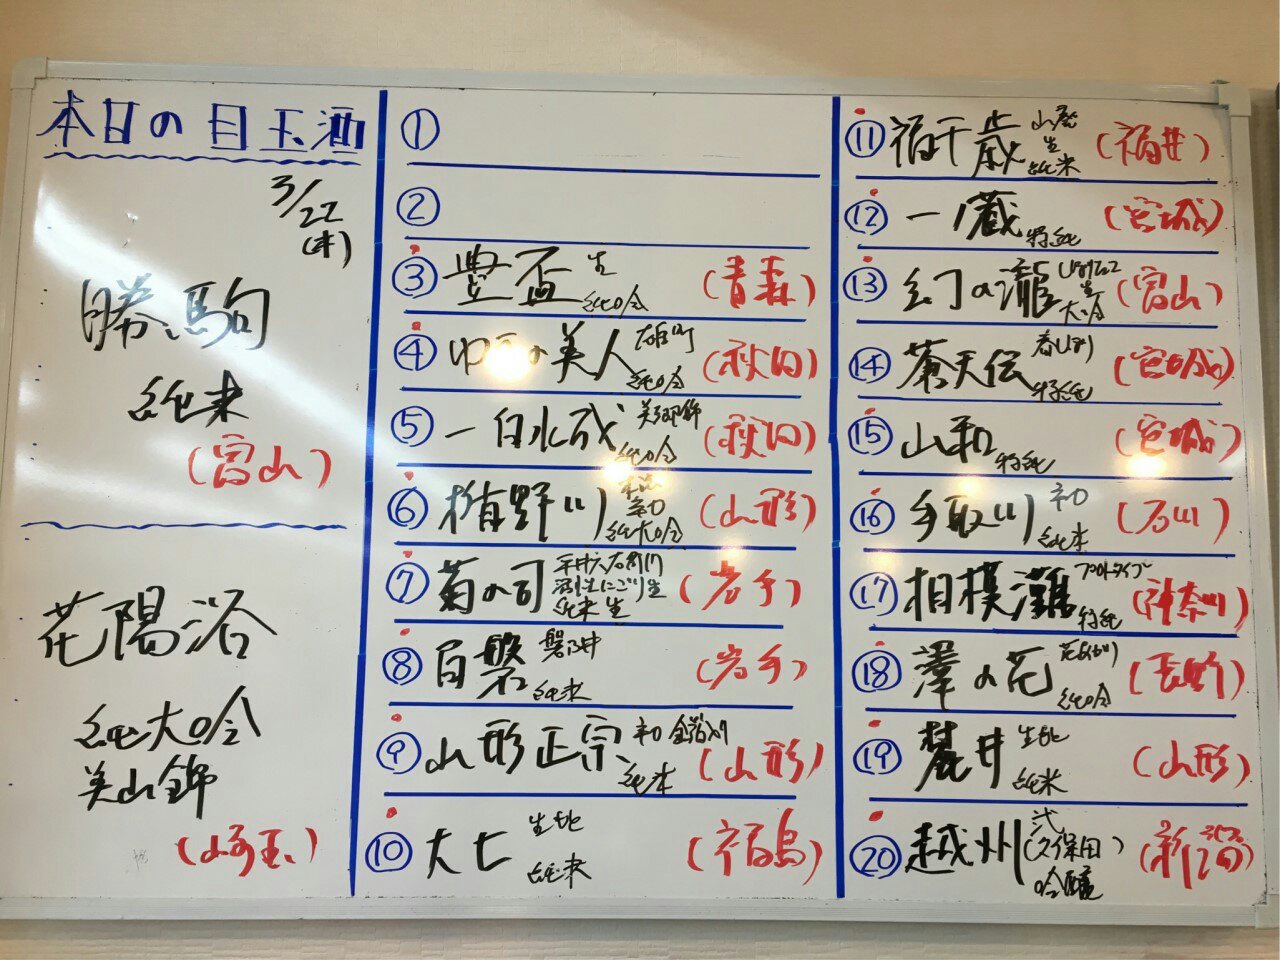 本日の目玉酒
3/22
(木)
勝駒
純米
(富山)
花陽浴
純大吟
美山錦
(埼玉)
①
②
③ 豊盃 生 純吟 (青森)
④ の美人 雄町 純吟 (秋田)
⑤ 一白水成 美郷錦 純吟 (秋田)
⑥ 楯野川 初 純大吟 (山形)
⑦ 菊の司 平井六右衛門
活性にごり生
純米 生 (岩手)
⑧ 百磐 磐井 純米 (岩手)
⑨ 山形正宗 初 純米 (山形)
⑩ 大七 生酛 純米 (福島)
⑪ 福千歳 山廃 生 純米 (福井)
⑫ 一ノ蔵 特純 (宮城)
⑬ 幻の瀧 しぼりたて 生 大吟 (富山)
⑭ 蒼天伝 春しぼり 特純 (宮城)
⑮ 山和 特純 (宮城)
⑯ 手取川 初 純米 (石川)
⑰ 相模灘 プロトタイプ 特純 (神奈川)
⑱ 澤の花 花ざかり 純吟 (長野)
⑲ 麓井 生酛 純米 (山形)
⑳ 越州 弐 (久保田) 吟醸 (新潟)